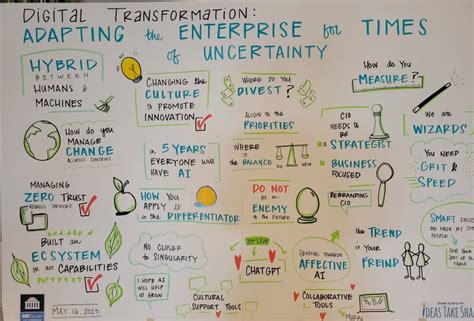 DIGITAL TRANSFORMATION:
ADAPTING the ENTERPRISE for TIMES
of UNCERTAINTY
HYBRID
BETWEEN
HUMANS &
MACHINES
CHANGING the
CULTURE
to PROMOTE
INNOVATION
WHERE DO YOU
DIVEST?
HOW DO YOU
MEASURE?
ALIGN to the
PRIORITIES
CIO
NEEDS to BE
STRATEGIST
BUSINESS
FOCUSED
WE are
WIZARDS
HOW do you
MANAGE
CHANGE
ACROSS COUNTRIES
in 5 YEARS
EVERYONE WILL
HAVE AI
WHERE
is the
BALANCE
YOU NEED
GRIT &
SPEED
MANAGING
ZERO TRUST
ACROSS DEVICES?
HOW YOU
APPLY it
is the DIFFERENTIATOR
DO NOT
be an
ENEMY
of the FUTURE
REBRANDING
CIO
SMART
BUILT an
ECOSYSTEM
for our CAPABILITIES
NO CLOSER
to SINGULARITY
CHATGPT
HEADING TOWARDS
AFFECTIVE
AI
The TREND
is YOUR
FREIND
I HOPE AI
WILL HELP
US GROW
CULTURAL
SUPPORT TOOLS
COLLABORATIVE
TOOLS
MURAL
MIT
MAY 16, 2023
IDEAS TAKE SHA